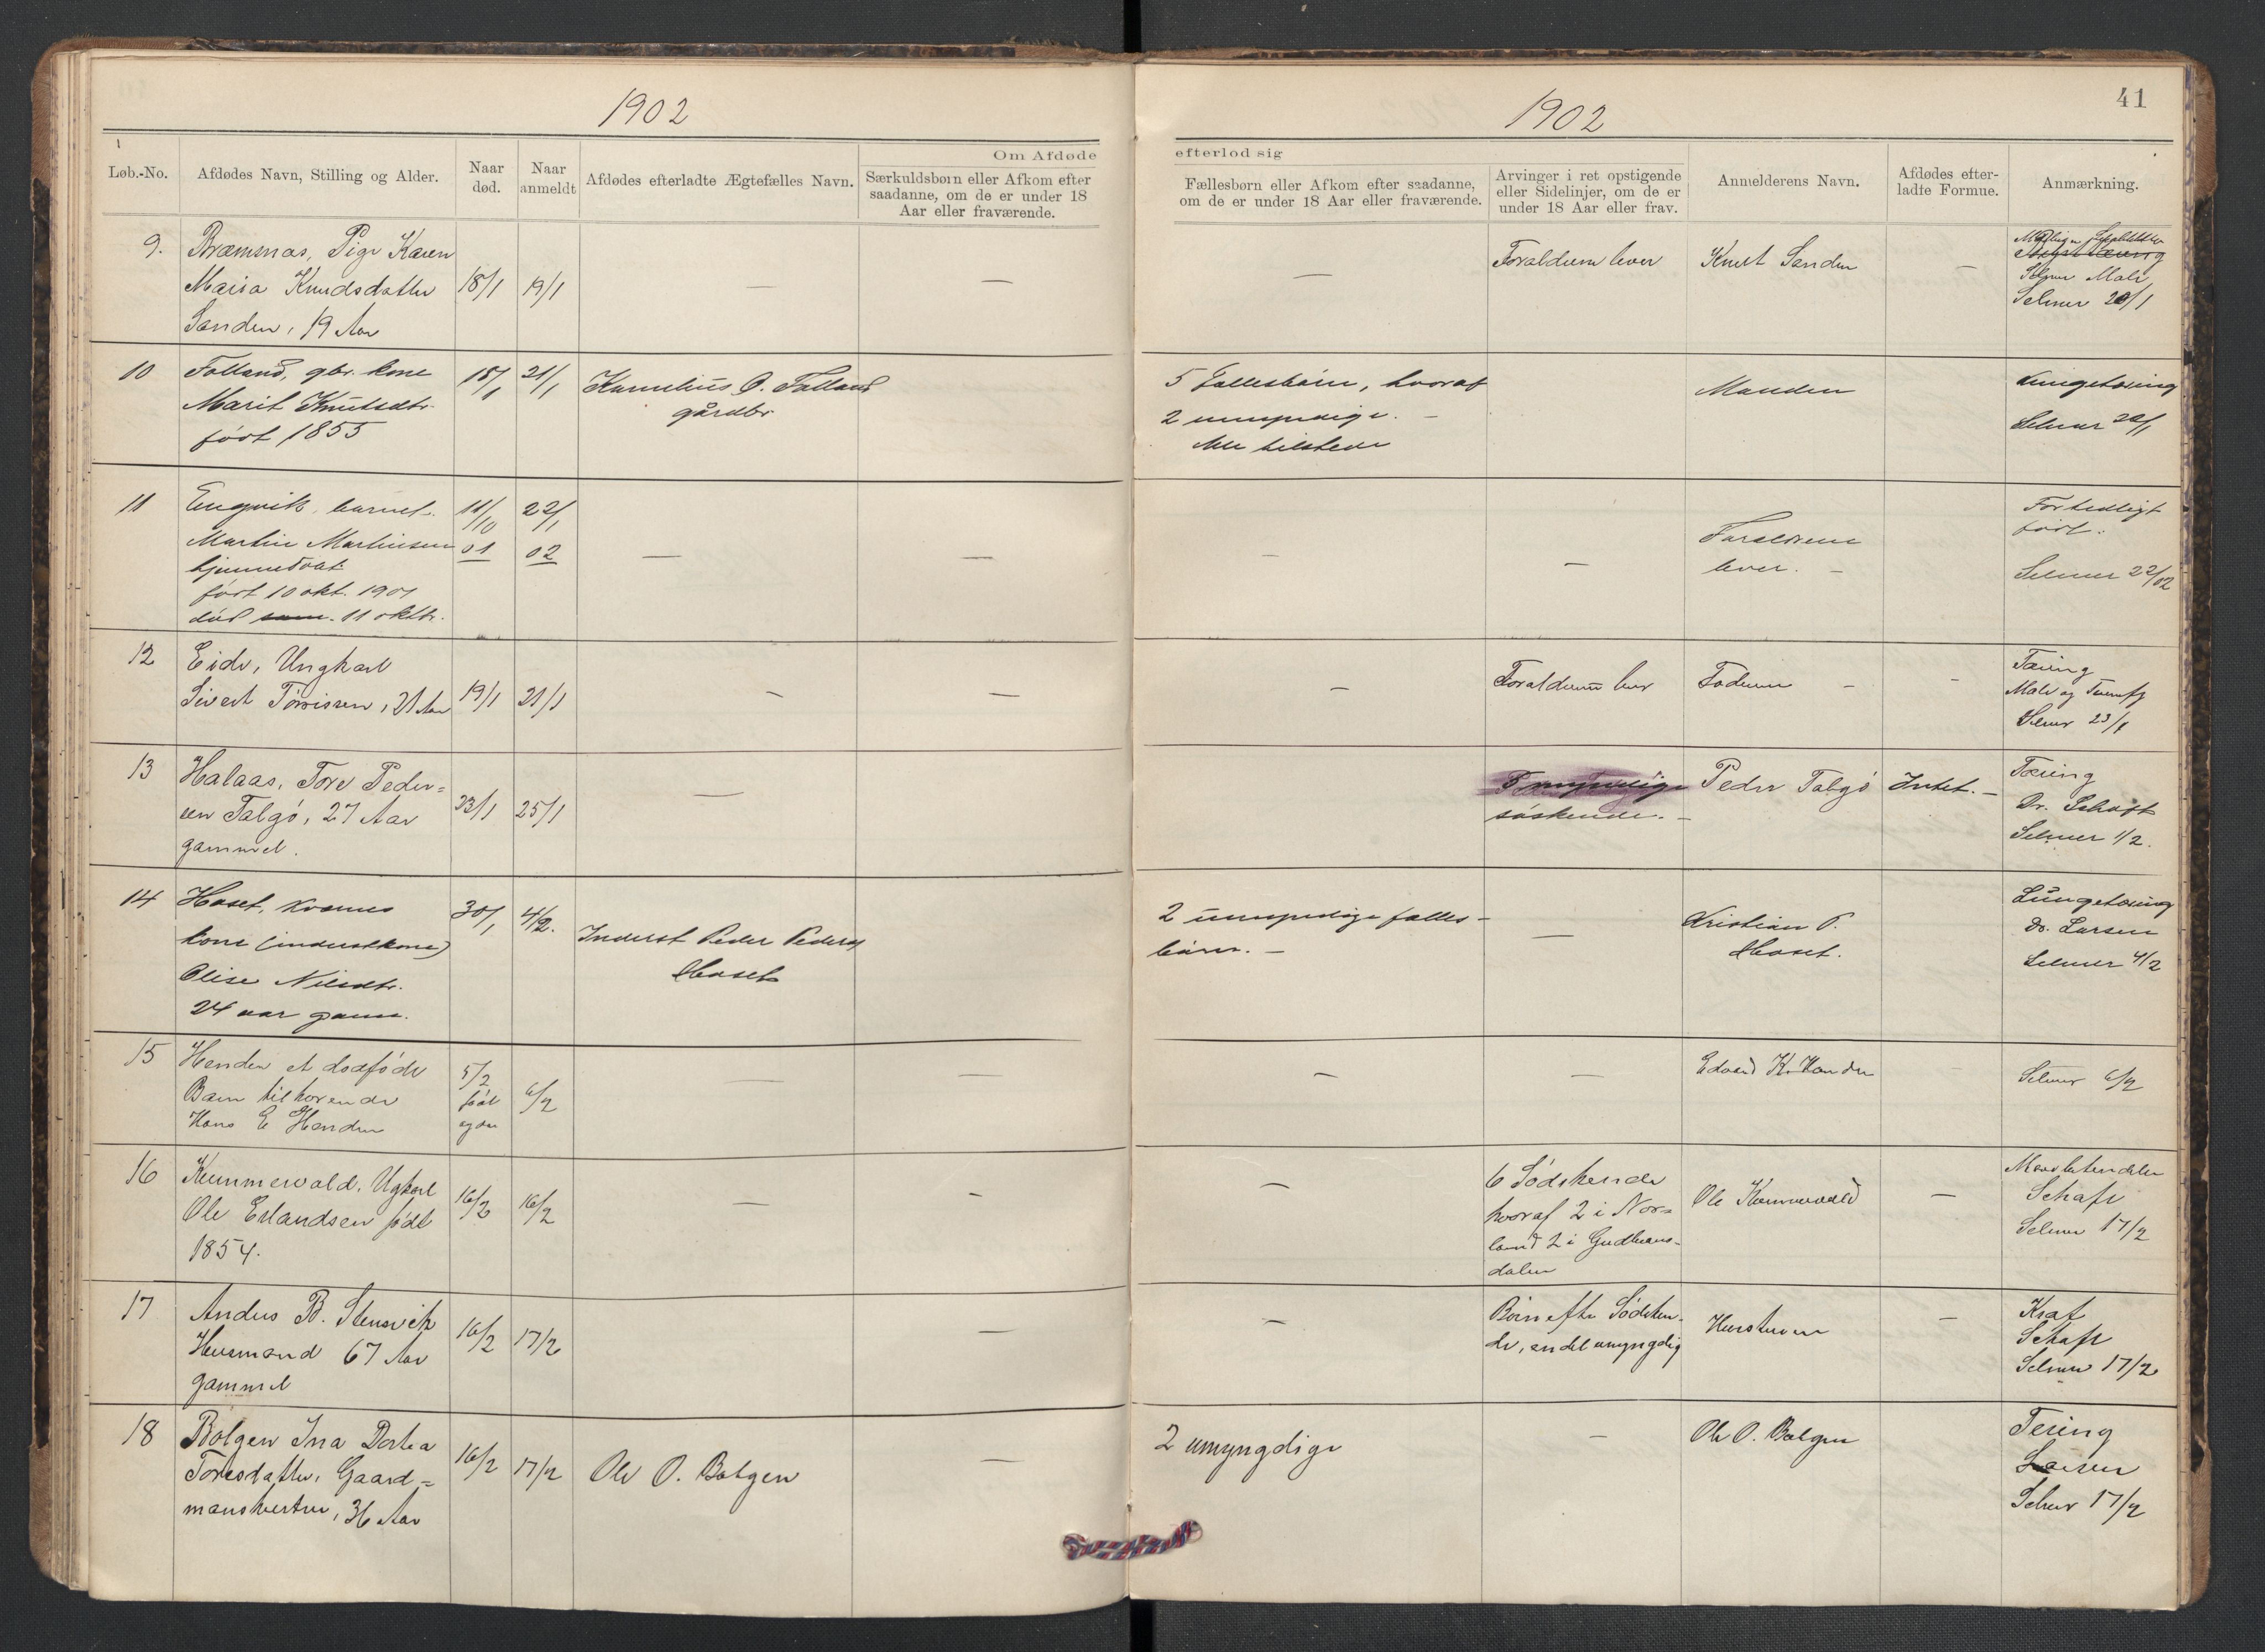 1902
1902
41
Om Afdøde
efterlod sig
Løb.-No.
Afdødes Navn, Stilling og Alder.
Naar død.
Naar anmeldt
Afdødes efterladte Ægtefælles Navn.
Særkuldsbørn eller Afkom efter
saadanne, om de er under 18
Aar eller fraværende.
Fællesbørn eller Afkom efter saadanne,
om de er under 18 Aar eller fraværende.
Arvinger i ret opstigende
eller Sidelinjer, om de er
under 18 Aar eller frav.
Anmelderens Navn.
Afdødes efter-
ladte Formue.
Anmærkning.
9.
Bræmnæs, Pige Karen
Maria Knudsdatter
Sanden, 19 Aar
18/1
19/1
—
—
—
Forældrene lever
Knut Sanden
—
Male
Selmer 20/1
10
Folland, gbr. kone
Marit Knutsdtr.
født 1855
18/1
21/1
Kornelius O. Folland
gårdbr
5 Fællesbørn, hvoraf
2 umyndige. —
Alle tilstede
Manden
Lungetæring
Selmer 22/1
11
Engvik, barnet
Martin Martinsen
hjemmedøbt
født 10 okt. 1901
død 11 oktbr.
11/10
01
22/1
02
—
—
—
—
Forældrene
lever. —
Fortidligt
født.
Selmer 22/1 02
12
Eide, Ungkarl
Sivert Tørrissen, 21 Aar
19/1
21/1
—
—
—
Forældrene lever
Faderen —
—
Tæring
Male og
Selmer 23/1
13
Halaas, Tore Peder=
sen Talgø, 27 Aar
gammel.
23/1
25/1
—
5 myndige
søskende. —
Peder Talgø
Intet. —
Tæring
Dr. Schaft
Selmer 1/2.
14
Hoset, Kvernes
kone (inderstkone)
Olise Nilsdtr.
24 aar gamm.
30/1
4/2.
Inderst Peder Peders
Hoset
2 umyndige fælles-
børn. —
—
Kristian P.
Hoset.
Lungetæring
Dr. Larsen
Selmer 4/2
15
Henden et dødfødt
Barn tilhørende
Hans E Henden
5/2
født
og død
6/2
—
—
—
—
Edvard K. Henden
—
Selmer 6/2
16
Kummervold, Ugkarl
Ole Erlandsen født
1854.
16/2
16/2
—
—
—
6 Sødskende
hvoraf 2 i Nor=
land 2 i Gudbrans-
dalen
Ole Kummervold
—
Schaft
Selmer 17/2
17
Anders B. Stensvik
Husmand 67 Aar
gammel
16/2
17/2
—
—
Børn efter Sødsken-
de, en del umyngdig
Hustruen
—
Kraf
Schaft
Selmer 17/2
18
Bolgen Ina Dortea
Toresdatter, Gaard=
manshustru, 36 Aar
16/2
17/2
Ole O. Bolgen
—
2 umyngdige
—
Ole O. Bolgen
Tæring
Larsen
Selmer 17/2